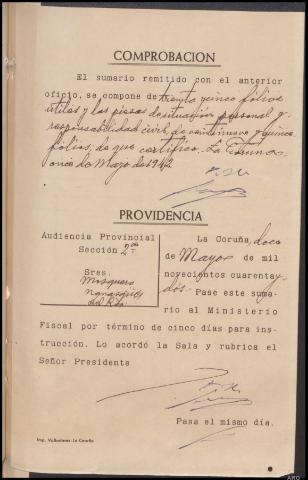 COMPROBACION
El sumario remitido con el anterior
oficio, se compone de treinta y cinco folios
útiles y las piezas de situación personal y
responsabilidad civil, de veintinueve y quince
folios, de que certifico. La Coruña
once de Mayo de 1942
PROVIDENCIA
Audiencia Provincial
Sección 2ª
Sres.
Mosquera
del Río
La Coruña, doce
de Mayo de mil
novecientos cuarenta y
dós. Pase este suma-
rio al Ministerio
Fiscal por término de cinco días para ins-
trucción. Lo acordó la Sala y rubrica el
Señor Presidente
Pasa el mismo día.
Imp. Vallcalares-La Coruña